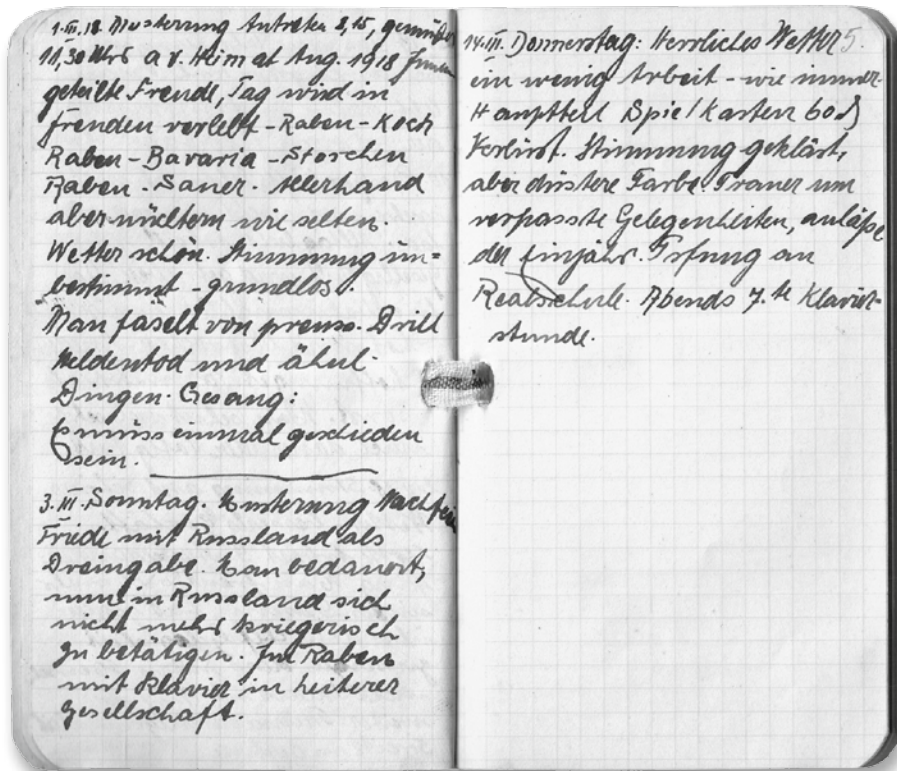 1.III.18. Musterung Antreten 8,15, gemustert
11,30 Uhr a v. Heimat Aug. 1918
geteilte Freude, Tag wird in
freuden verlebt - Raben - Koch
Raben - Bavaria - Storchen
Raben - Sauer. Allerhand
aber nüchtern wie selten.
Wetter schön. Stimmung un=
bestimmt - grundlos.
Man faselt von preuss. Drill
Heldentod und ähnl.
Dingen. Gesang:
Es muss einmal geschieden
sein.
3.III. Sonntag. Musterung Nachfeier
Friede mit Russland als
Dreingabe. Man bedauert,
nun in Russland sich
nicht mehr kriegerisch
zu betätigen. Im Raben
mit Klavier in heiterer
Gesellschaft.
5.
14.III. Donnerstag: Herrliches Wetter
ein wenig Arbeit - wie immer.
Hauptteil Spielkarten 60 ₰
Verlust. Stimmung geklärt,
aber düstere Farbe. Trauer um
verpasste Gelegenheiten, anlässl.
der Einjähr. Prfung an
Realschule. Abends 7. te Klavier-
stunde.